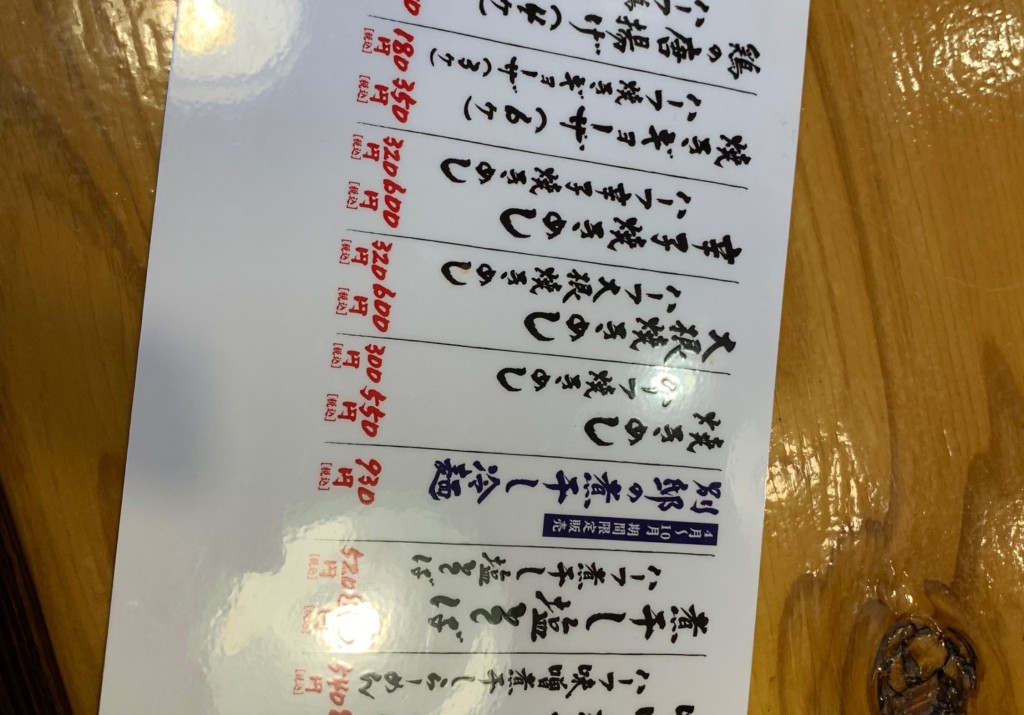 ハーフ味噌煮干しらーめん
円[税込]
煮干し塩そば
ハーフ煮干し塩そば 520円[税込]
4月〜10月期間限定販売
別邸の煮干し冷麺 930円[税込]
焼きめし 550円[税込]
ハーフ焼きめし 300円[税込]
大根焼きめし 600円[税込]
ハーフ大根焼きめし 320円[税込]
辛子焼きめし 600円[税込]
ハーフ辛子焼きめし 320円[税込]
焼きギョーザ(6ケ) 350円[税込]
ハーフ焼きギョーザ(3ケ) 180円[税込]
鶏の唐揚げ
ハーフ